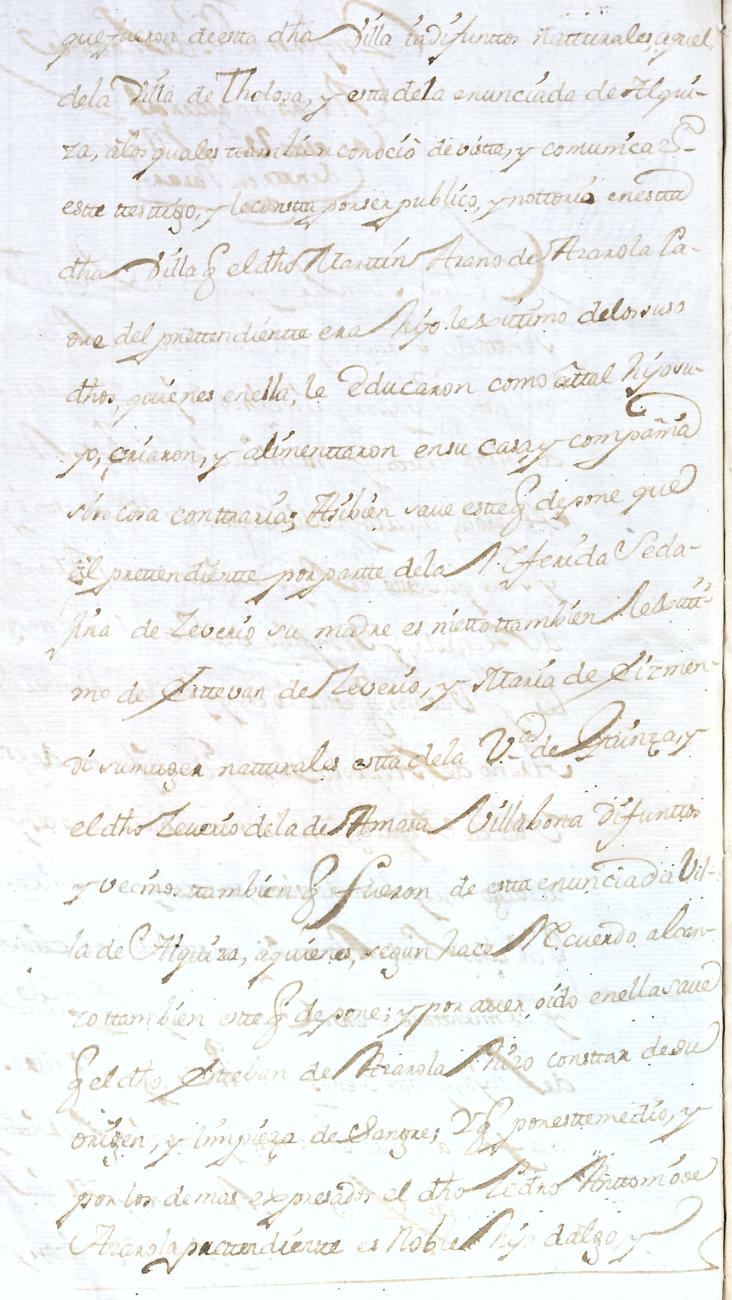 que fueron de esta dha Villa ia difunttos natturales, aquel
dela Villa de Tholosa, y esta dela enunciada de Alqui-
za, a los quales tambien conoció de vista, y comunicaz.on
este testtigo, y le consta por ser publico, y nottorio en estta
dha Villa q el dho Martin Arano de Ararola Pa-
dre del prettendientte era hijo lexitimo delos suso
dhos, quienes en ella, le educaron como attal hijo su-
yo, criaron, y alimenttaron en su casa, y compañia
sin cosa contraria; Asibien save este q depone que
el prettendientte por partte dela Referida Seda-
lina de Zeverio su madre es nietto ttambien lexitti-
mo de Esttevan de Zeverio, y Maria de Lizmen-
di su muger natturales esta dela V.d de Goinza, y
el dho Zeverio dela de Amasa Villabona difunttos
y vecinos ttambien q fueron de esta enunciada Vil-
la de Alquiza, a quienes, segun hace Recuerdo alcan-
zo ttambien este q depone; y por aver oido en ella save
q el dho Esteban de Ararola hizo consttar de su
origen, y limpieza de Sangre; Y q por este medio, y
por los demas expresados el dho Pedro Anttonio de
Ararola prettendientte es Noble hijo dalgo, y